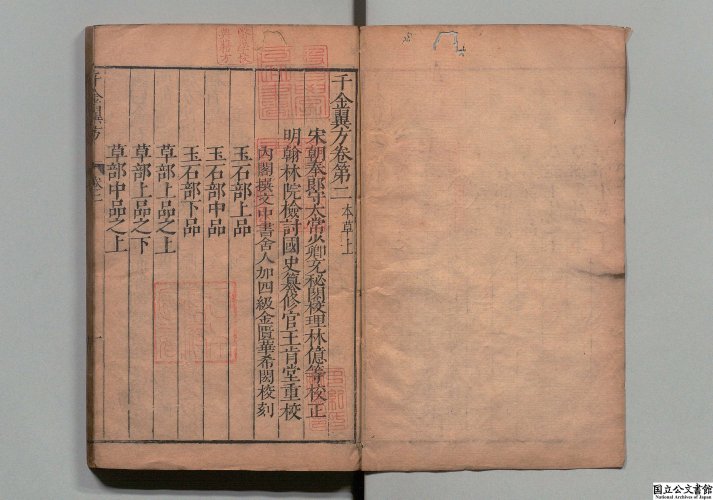 千金翼方卷第二 本草上
宋朝奉郎守太常少卿充秘閣校理林億等校正
明翰林院檢討國史纂修官王肯堂重校
內閣撰文中書舍人加四級金匱華希閎校刻
玉石部上品
玉石部中品
玉石部下品
草部上品之上
草部上品之下
草部中品之上
千金翼方 卷二 一
国立公文書館
National Archives of Japan